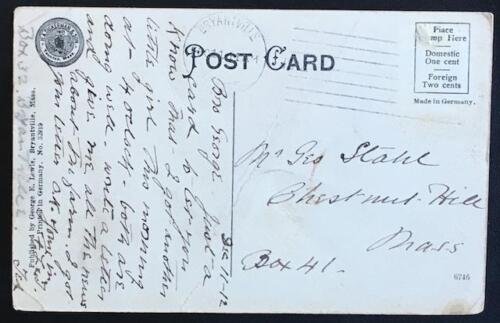 BRYANTVILLE
POST CARD
Place
Stamp Here
Domestic
One cent
Foreign
Two cents
Made in Germany.
Dec 11-12
Bro George Just a
card to let you
know that I got another
little girl This morning
at 4 oclock - both are
doing well - write a letter
and give me all the news
about the farm. I got
your letter
Ted
Box 52. Bryantville.
Published by George E. Lewis, Bryantville, Mass.
Printed in Germany, No.
Mr Geo Stahl
Chestnut Hill
Mass
Box 41.
6746